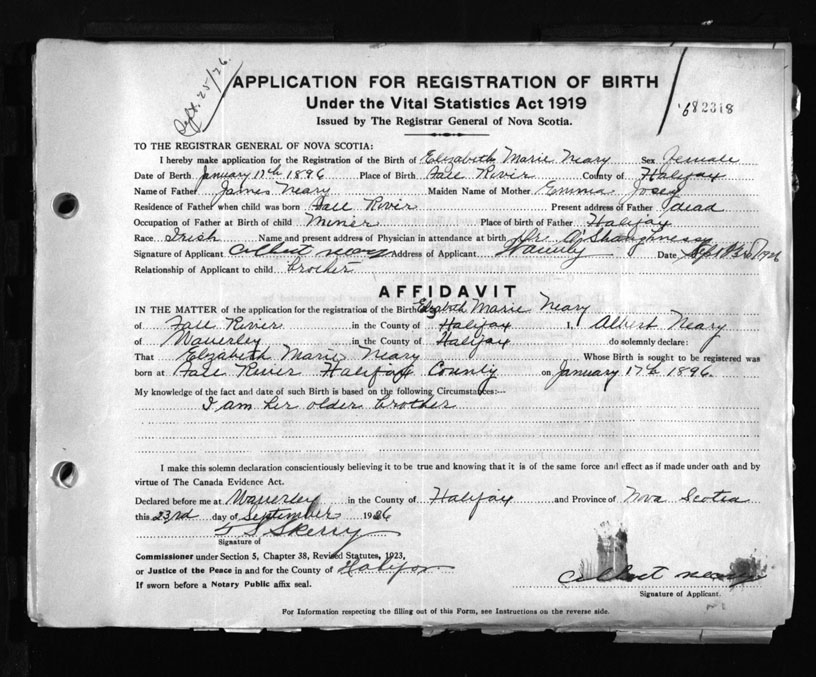 Sept. 25/26.
APPLICATION FOR REGISTRATION OF BIRTH
Under the Vital Statistics Act 1919
Issued by The Registrar General of Nova Scotia.
682318
TO THE REGISTRAR GENERAL OF NOVA SCOTIA:
I hereby make application for the Registration of the Birth of Elizabeth Marie Neary Sex female
Date of Birth January 17th 1896 Place of Birth Fall River County of Halifax
Name of Father James Neary Maiden Name of Mother Emma Josey
Residence of Father when child was born Fall River Present address of Father dead
Occupation of Father at Birth of child Miner Place of birth of Father Halifax
Race Irish Name and present address of Physician in attendance at birth Dr. O'Shaughnessy
Signature of Applicant Albert Neary Address of Applicant Waverley Date Sept 23rd 1926
Relationship of Applicant to child brother
AFFIDAVIT
IN THE MATTER of the application for the registration of the Birth of Elizabeth Marie Neary
of Fall River in the County of Halifax I, Albert Neary
of Waverley in the County of Halifax do solemnly declare:
That Elizabeth Marie Neary Whose Birth is sought to be registered was
born at Fall River Halifax County on January 17th 1896.
My knowledge of the fact and date of such Birth is based on the following Circumstances:--
I am her older brother
I make this solemn declaration conscientiously believing it to be true and knowing that it is of the same force and effect as if made under oath and by
virtue of The Canada Evidence Act.
Declared before me at Waverley in the County of Halifax and Province of Nova Scotia
this 23rd day of September 1926
Skerry
Signature of
Commissioner under Section 5, Chapter 38, Revised Statutes, 1923,
or Justice of the Peace in and for the County of Halifax
If sworn before a Notary Public affix seal.
Albert Neary
Signature of Applicant.
For Information respecting the filling out of this Form, see Instructions on the reverse side.